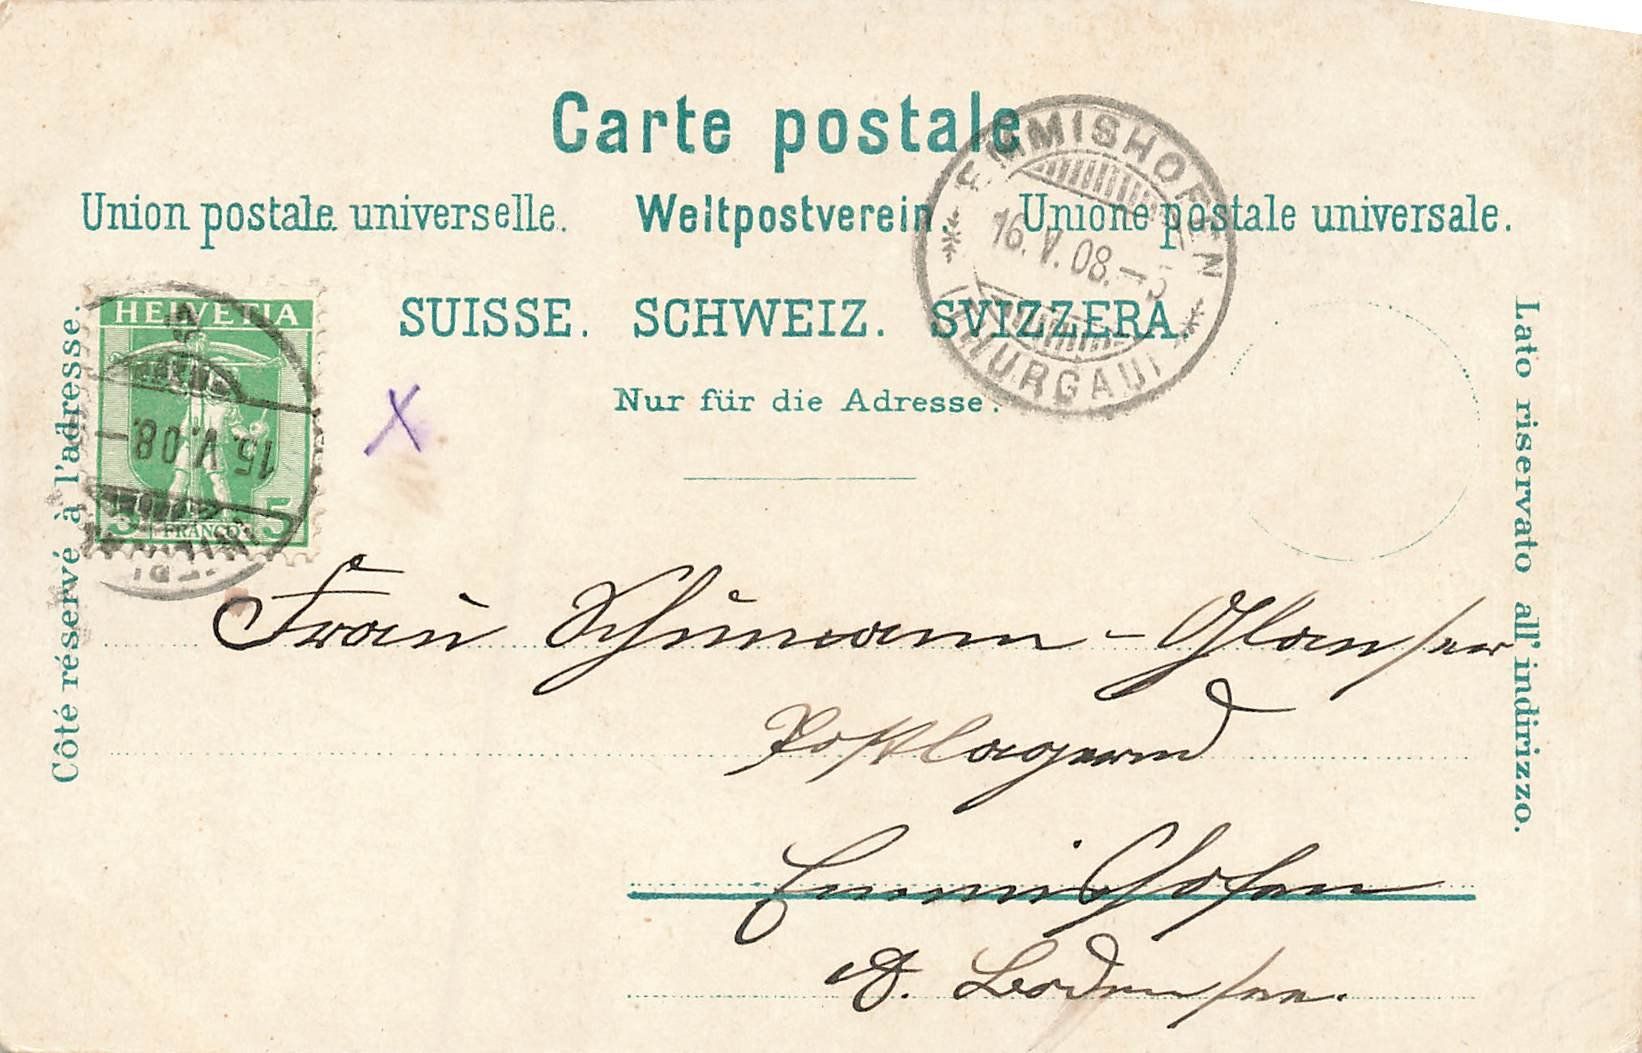 Carte postale
Union postale universelle. Weltpostverein. Unione postale universale.
SUISSE. SCHWEIZ. SVIZZERA.
Nur für die Adresse.
Côté réservé à l'adresse.
Lato riservato all'indirizzo.
HELVETIA
5 FRANCO 5
15. V. 08.–
EMMISHOFEN
16. V. 08.–5
(THURGAU)
X
Frau Schumann-Glanser
Postlagernd
Emmishofen
a. Bodensee.